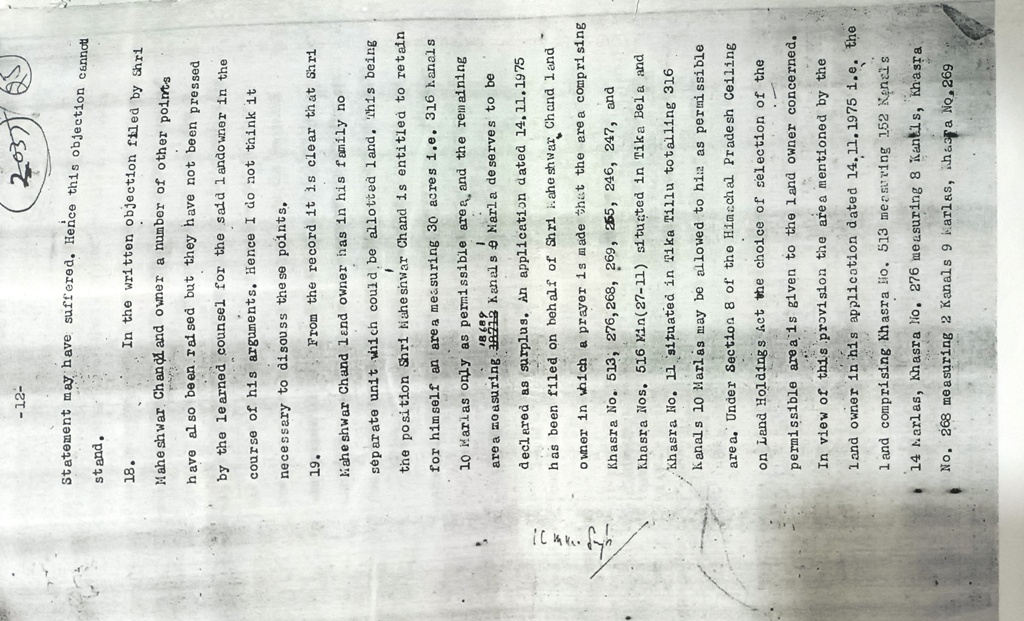 -12-
2037
Statement may have suffered. Hence this objection cannot
stand.
18. In the written objection filed by Shri
Maheshwar Chand land owner a number of other points
have also been raised but they have not been pressed
by the learned counsel for the said landowner in the
course of his arguments. Hence I do not think it
necessary to discuss these points.
19. From the record it is clear that Shri
Maheshwar Chand land owner has in his family no
separate unit which could be allotted land. This being
the position Shri Maheshwar Chand is entitled to retain
for himself an area measuring 30 acres i.e. 316 kanals
10 Marlas only as permissible area and the remaining
18689
area measuring Kanals 1 Marla deserves to be
declared as surplus. An application dated 14.11.1975
has been filed on behalf of Shri Maheshwar Chand land
owner in which a prayer is made that the area comprising
Khasra No. 513, 276,268, 269, 265, 246, 247, and
Khasra Nos. 516 Min(27-11) situated in Tika Bela and
Khasra No. 11 situated in Tika Tillu totalling 316
Kanals 10 Marlas may be allowed to him as permissible
area. Under Section 8 of the Himachal Pradesh Ceiling
on Land Holdings Act the choice of selection of the
permissible area is given to the land owner concerned.
In view of this provision the area mentioned by the
land owner in his application dated 14.11.1975 i.e. the
land comprising Khasra No. 513 measuring 152 Kanals
14 Marlas, Khasra No. 276 measuring 8 Kanals, Khasra
No. 268 measuring 2 Kanals 9 Marlas, Khasra No.269